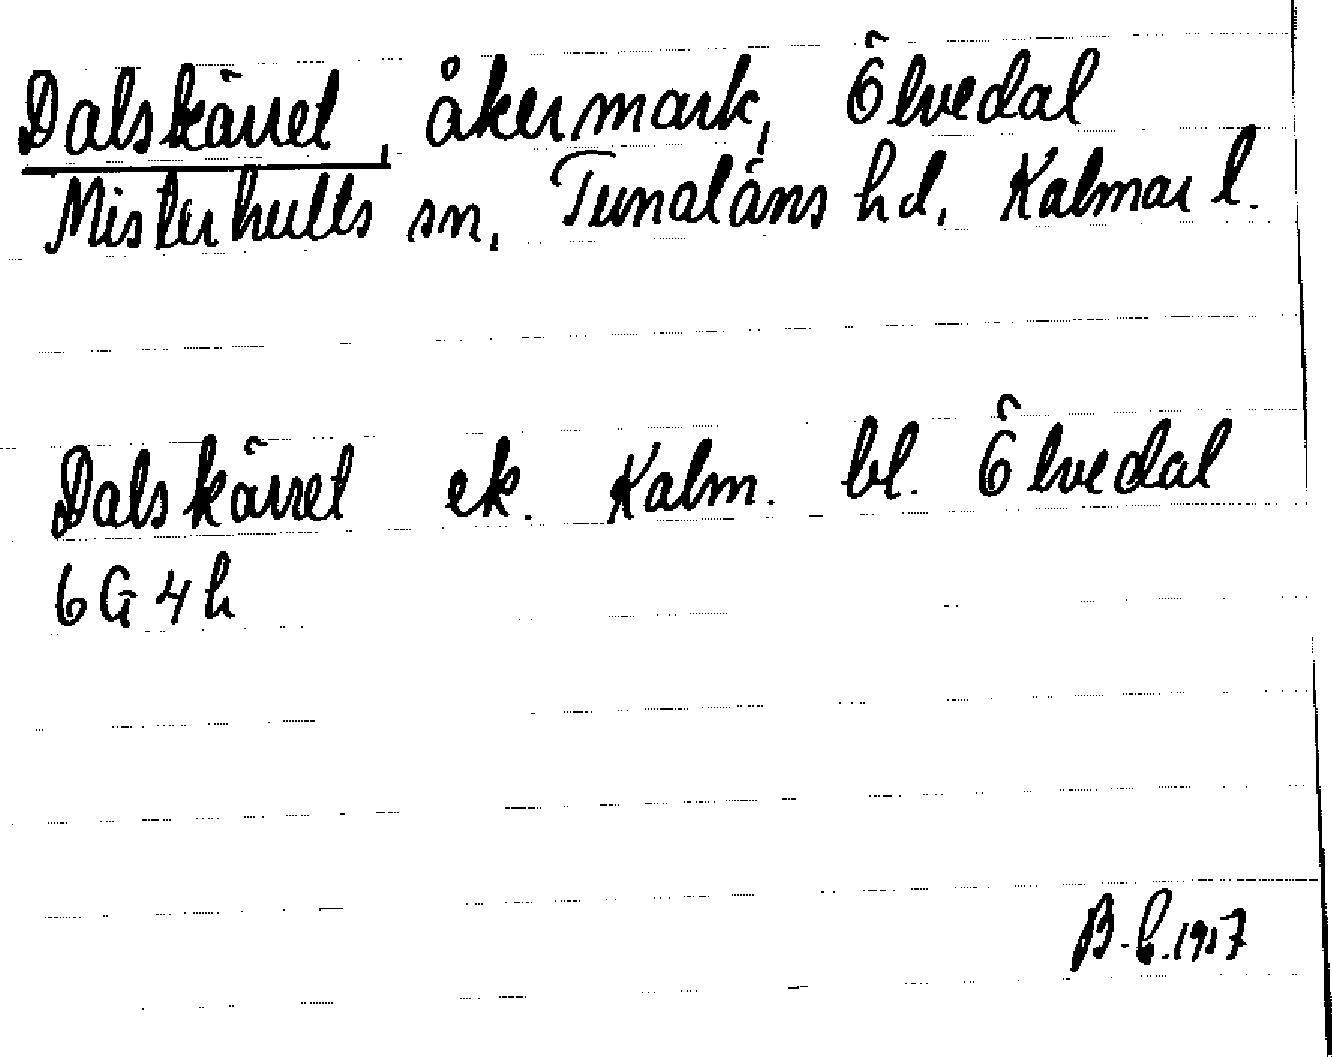 Dalskärret, åkermark, Ölvedal
Misterhults sn, Tunaläns hd, Kalmar l.
Dalskärret ek. Kalm. bl. Ölvedal
6G4h